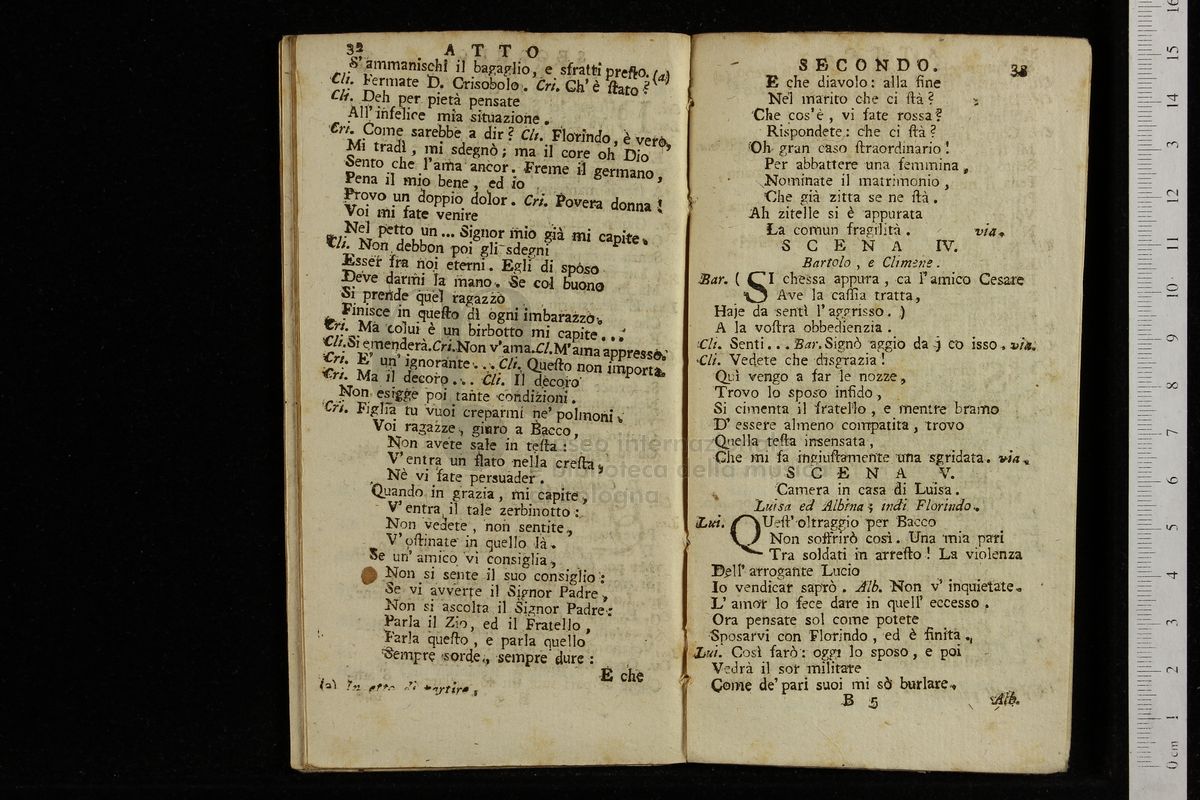 32 ATTO
S'ammanischi il bagaglio, e sfratti presto. (a)
Cli. Fermate D. Crisobolo. Cri. Ch'è stato?
Cli. Deh per pietà pensate
All'infelice mia situazione.
Cri. Come sarebbe a dir? Cli. Florindo, è vero,
Mi tradì, mi sdegnò; ma il core oh Dio
Sento che l'ama ancor. Freme il germano,
Pena il mio bene, ed io
Provo un doppio dolor. Cri. Povera donna!
Voi mi fate venire
Nel petto un... Signor mio già mi capite.
Cli. Non debbon poi gli sdegni
Esser fra noi eterni. Egli di sposo
Deve darmi la mano. Se col buono
Si prende quel ragazzo
Finisce in questo dì ogni imbarazzo.
Cri. Ma colui è un birbotto mi capite...
Cli. Si emenderà. Cri. Non v'ama. Cl. M'ama appresso.
Cri. E' un'ignorante... Cli. Questo non importa.
Cri. Ma il decoro... Cli. Il decoro
Non esigge poi tante condizioni.
Cri. Figlia tu vuoi creparmi ne' polmoni.
Voi ragazze, giuro a Bacco,
Non avete sale in testa:
V'entra un flato nella cresta,
Nè vi fate persuader.
Quando in grazia, mi capite,
V'entra il tale zerbinotto:
Non vedete, non sentite,
V'ostinate in quello là.
Se un'amico vi consiglia,
Non si sente il suo consiglio:
Se vi avverte il Signor Padre,
Non si ascolta il Signor Padre:
Parla il Zio, ed il Fratello,
Parla questo, e parla quello
Sempre sorde, sempre dure:
E che
(a) In atto di partire.
SECONDO. 33
E che diavolo: alla fine
Nel marito che ci stà?
Che cos'è, vi fate rossa?
Rispondete: che ci stà?
Oh gran caso straordinario!
Per abbattere una femmina,
Nominate il matrimonio,
Che già zitta se ne stà.
Ah zitelle si è appurata
La comun fragilità. via.
SCENA IV.
Bartolo, e Climene.
Bar. (SI chessa appura, ca l'amico Cesare
Ave la cassia tratta,
Haje da sentì l'aggrisso.)
A la vostra obbedienzia.
Cli. Senti... Bar. Signò aggio da j co isso. via.
Cli. Vedete che disgrazia!
Quì vengo a far le nozze,
Trovo lo sposo infido,
Si cimenta il fratello, e mentre bramo
D'essere almeno compatita, trovo
Quella testa insensata,
Che mi fa ingiustamente una sgridata. via.
SCENA V.
Camera in casa di Luisa.
Luisa ed Albina; indi Florindo.
Lui. QUest'oltraggio per Bacco
Non soffrirò così. Una mia pari
Tra soldati in arresto! La violenza
Dell'arrogante Lucio
Io vendicar saprò. Alb. Non v'inquietate.
L'amor lo fece dare in quell'eccesso.
Ora pensate sol come potete
Sposarvi con Florindo, ed è finita.
Lui. Così farò: oggi lo sposo, e poi
Vedrà il sor militare
Come de' pari suoi mi sò burlare.
B 5 Alb.